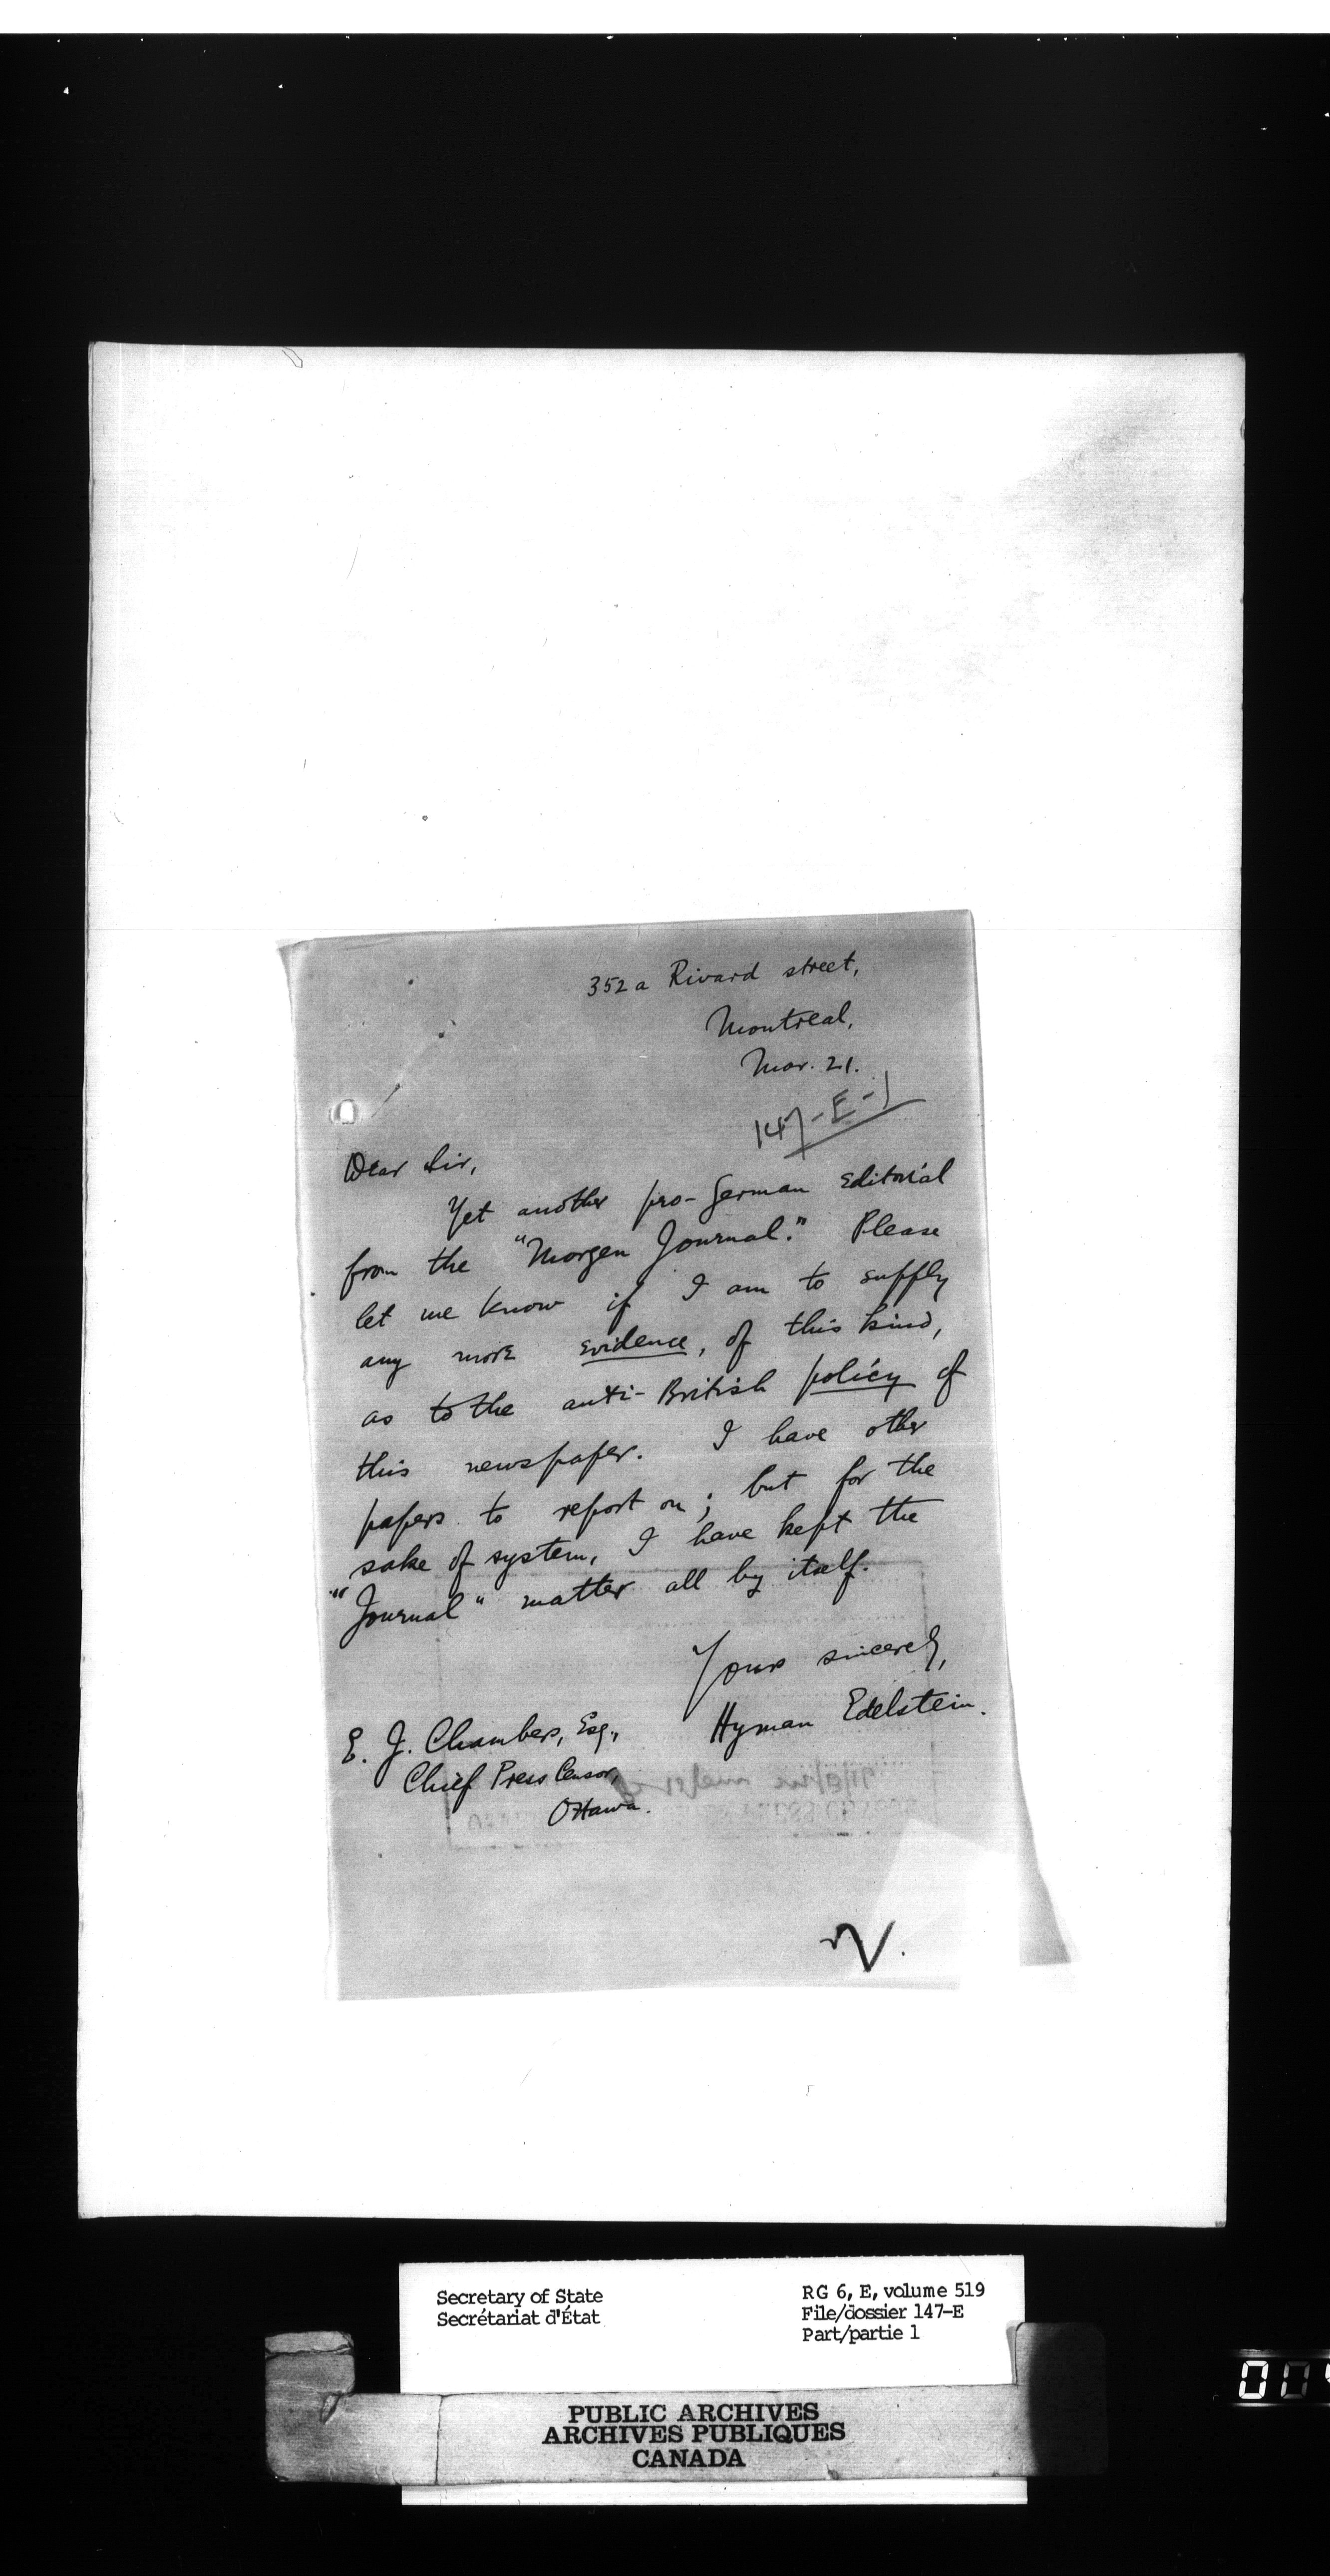 352a Rivard street,
Montreal,
Mar. 21.
147-E-1
Dear Sir,
Yet another pro-German editorial
from the "Morgen Journal." Please
let me know if I am to supply
any more evidence, of this kind,
as to the anti-British policy of
this newspaper. I have other
papers to report on; but for the
sake of system, I have kept the
"Journal" matter all by itself.
Yours sincerely,
Hyman Edelstein.
E. J. Chambers, Esq.,
Chief Press Censor,
Ottawa.
Secretary of State
Secrétariat d'État
RG 6, E, volume 519
File/dossier 147-E
Part/partie 1
PUBLIC ARCHIVES
ARCHIVES PUBLIQUES
CANADA